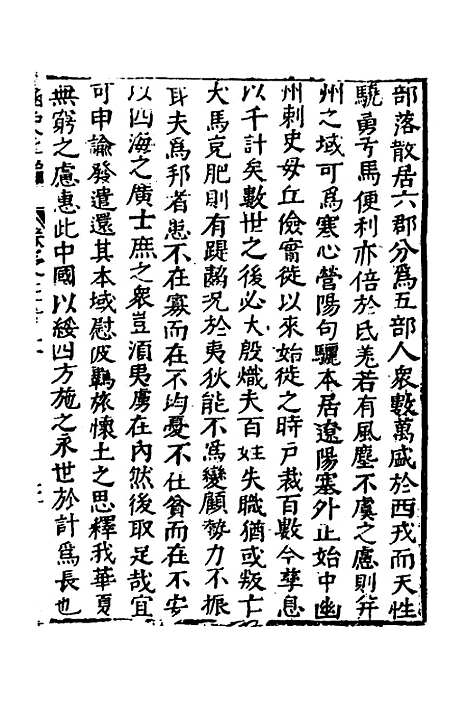 部落散居六郡分爲五部人衆數萬盛於西戎而天性
驍勇弓馬便利亦倍於氐羌若有風塵不虞之慮則幷
州之域可爲寒心營陽句驪本居遼陽塞外正始中幽
州刺史毋丘儉甯徙以來始徙之時戸裁百數今孳息
以千計矣數世之後必大殷熾夫百姓失職猶或叛亡
犬馬克肥則有踶齧況於夷狄能不爲變顧勢力不振
耳夫爲邦者患不在寡而在不均憂不在貧而在不安
以四海之廣士庶之衆豈須夷虜在内然後取足哉宜
可申諭發遣還其本域慰彼羈旅懷土之思釋我華夏
無窮之慮惠此中國以綏四方施之永世於計爲長也